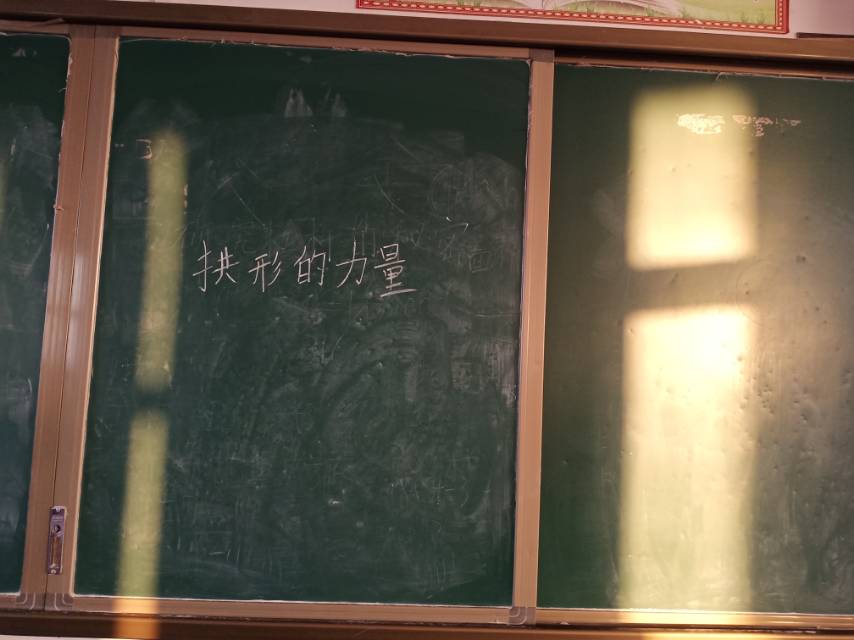 拱形的力量